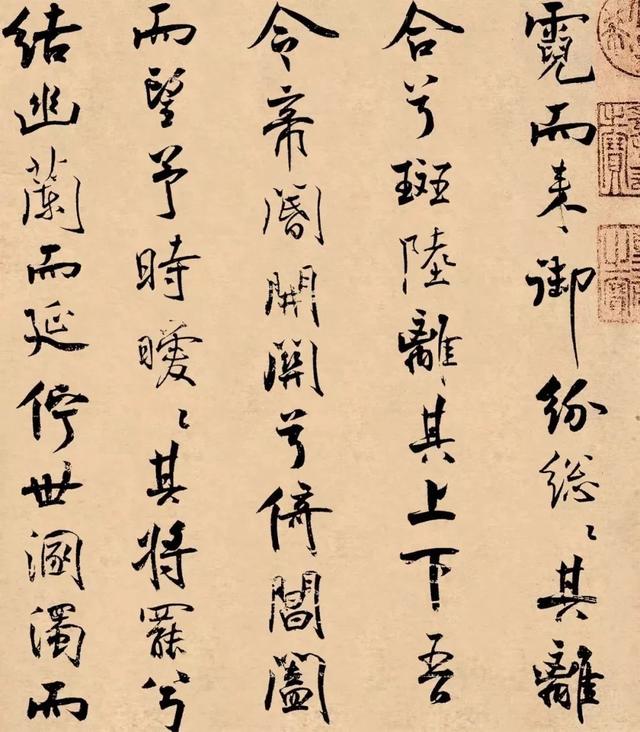 霓而来御紛総〻其離
合兮斑陸離其上下吾
令帝閽開関兮倚閶闔
而望予時曖〻其将罷兮
結幽蘭而延佇世溷濁而